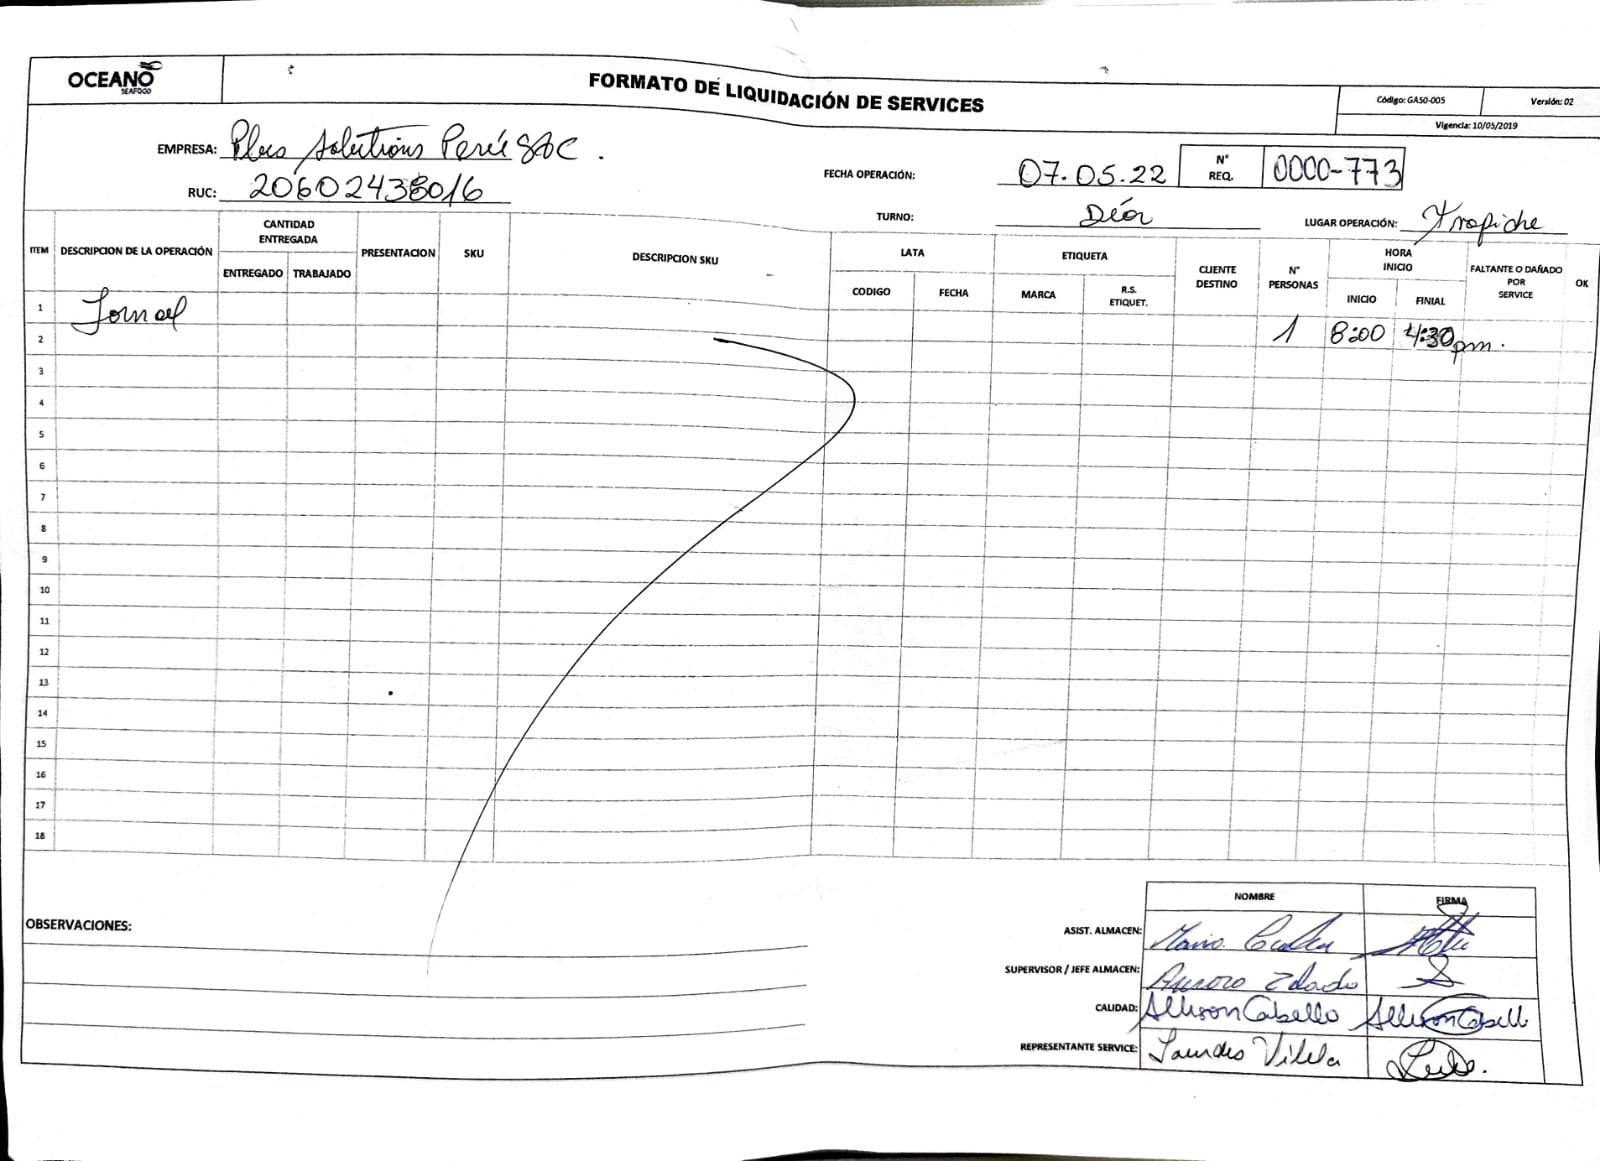 OCEANO
SEAFOOD
FORMATO DE LIQUIDACIÓN DE SERVICES
Código: GASO-005
Versión: 02
Vigencia: 10/05/2019
EMPRESA: Plus Solutions Perú SAC.
RUC: 20602438016
FECHA OPERACIÓN: 07.05.22
N° REQ. 0000-773
TURNO: Día
LUGAR OPERACIÓN: Trapiche
ITEM DESCRIPCION DE LA OPERACIÓN CANTIDAD ENTREGADA PRESENTACION SKU DESCRIPCION SKU LATA ETIQUETA CLIENTE DESTINO N° PERSONAS HORA INICIO FALTANTE O DAÑADO POR SERVICE OK
ENTREGADO TRABAJADO CODIGO FECHA MARCA R.S. ETIQUET. INICIO FINIAL
1 Jornal 1 8:00 4:30 pm.
2
3
4
5
6
7
8
9
10
11
12
13
14
15
16
17
18
OBSERVACIONES:
NOMBRE FIRMA
ASIST. ALMACEN: Mario
SUPERVISOR / JEFE ALMACEN:
CALIDAD: Allison Cabello Allison Cabell
REPRESENTANTE SERVICE: Lourdes Vilela